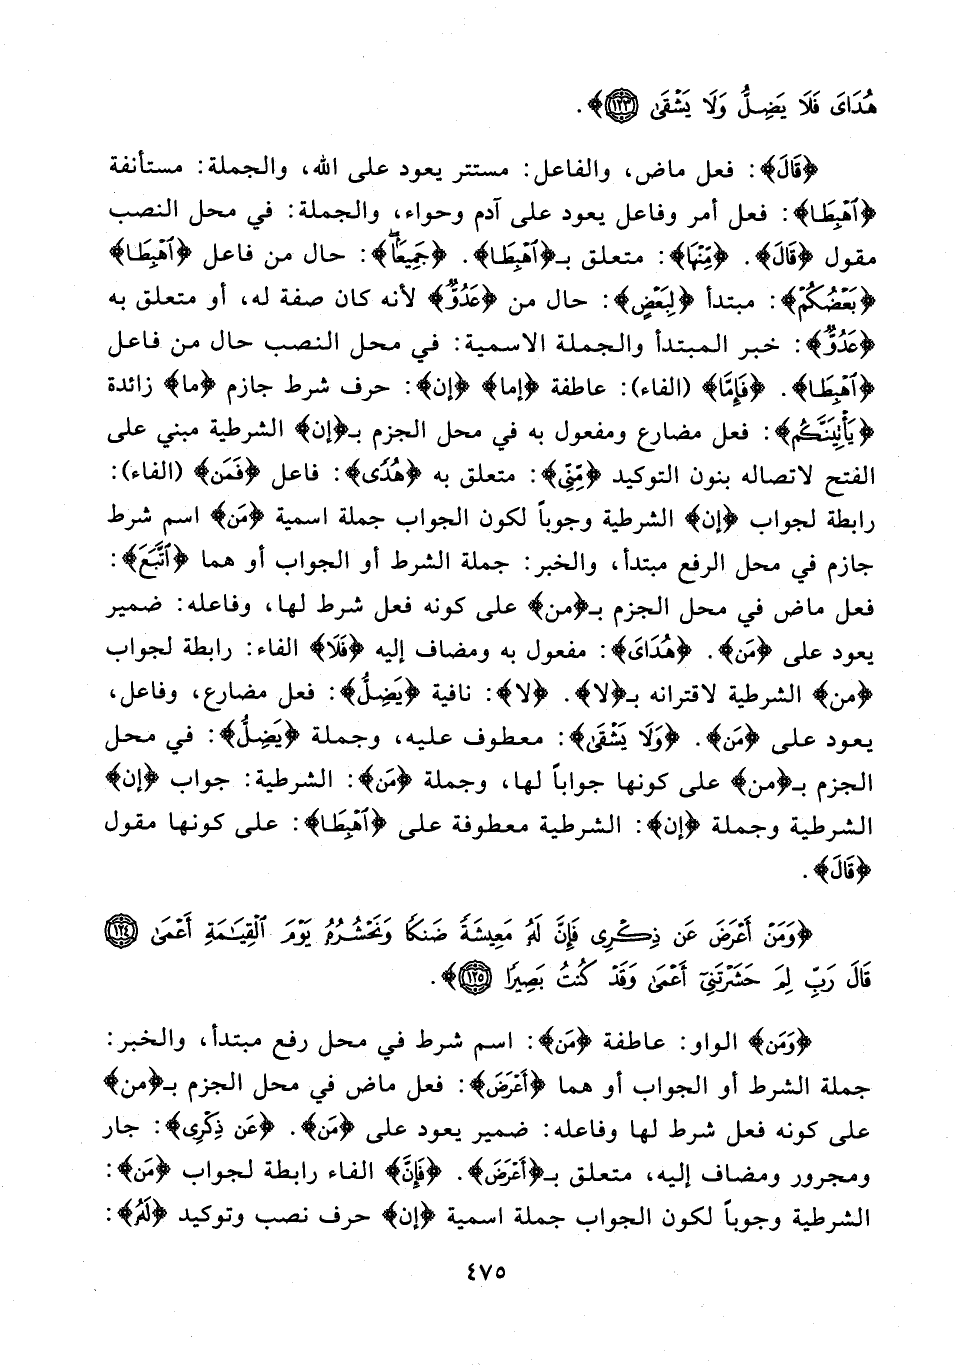 هُدَاىَ فَلَا يَضِلُّ وَلَا يَشْقَىٰ ﴿١٢٣﴾﴾.
﴿قَالَ﴾: فعل ماض، والفاعل: مستتر يعود على الله، والجملة: مستأنفة
﴿ٱهْبِطَا﴾: فعل أمر وفاعل يعود على آدم وحواء، والجملة: في محل النصب
مقول ﴿قَالَ﴾. ﴿مِنْهَا﴾: متعلق بـ﴿ٱهْبِطَا﴾. ﴿جَمِيعًۢا﴾: حال من فاعل ﴿ٱهْبِطَا﴾
﴿بَعْضُكُمْ﴾: مبتدأ ﴿لِبَعْضٍ﴾: حال من ﴿عَدُوٌّ﴾ لأنه كان صفة له، أو متعلق به
﴿عَدُوٌّ﴾: خبر المبتدأ والجملة الاسمية: في محل النصب حال من فاعل
﴿ٱهْبِطَا﴾. ﴿فَإِمَّا﴾ (الفاء): عاطفة ﴿إما﴾ ﴿إن﴾: حرف شرط جازم ﴿ما﴾ زائدة
﴿يَأْتِيَنَّكُم﴾: فعل مضارع ومفعول به في محل الجزم بـ﴿إن﴾ الشرطية مبني على
الفتح لاتصاله بنون التوكيد ﴿مِّنِّى﴾: متعلق به ﴿هُدًى﴾: فاعل ﴿فَمَن﴾ (الفاء):
رابطة لجواب ﴿إن﴾ الشرطية وجوباً لكون الجواب جملة اسمية ﴿مَن﴾ اسم شرط
جازم في محل الرفع مبتدأ، والخبر: جملة الشرط أو الجواب أو هما ﴿ٱتَّبَعَ﴾:
فعل ماض في محل الجزم بـ﴿من﴾ على كونه فعل شرط لها، وفاعله: ضمير
يعود على ﴿مَن﴾. ﴿هُدَاىَ﴾: مفعول به ومضاف إليه ﴿فَلَا﴾ الفاء: رابطة لجواب
﴿من﴾ الشرطية لاقترانه بـ﴿لا﴾. ﴿لا﴾: نافية ﴿يَضِلُّ﴾: فعل مضارع، وفاعل،
يعود على ﴿مَن﴾. ﴿وَلَا يَشْقَىٰ﴾: معطوف عليه، وجملة ﴿يَضِلُّ﴾: في محل
الجزم بـ﴿من﴾ على كونها جواباً لها، وجملة ﴿مَن﴾: الشرطية: جواب ﴿إن﴾
الشرطية وجملة ﴿إن﴾: الشرطية معطوفة على ﴿ٱهْبِطَا﴾: على كونها مقول
﴿قَالَ﴾.
﴿وَمَنْ أَعْرَضَ عَن ذِكْرِى فَإِنَّ لَهُۥ مَعِيشَةً ضَنكًا وَنَحْشُرُهُۥ يَوْمَ ٱلْقِيَـٰمَةِ أَعْمَىٰ ﴿١٢٤﴾
قَالَ رَبِّ لِمَ حَشَرْتَنِىٓ أَعْمَىٰ وَقَدْ كُنتُ بَصِيرًا ﴿١٢٥﴾﴾.
﴿وَمَن﴾ الواو: عاطفة ﴿مَن﴾: اسم شرط في محل رفع مبتدأ، والخبر:
جملة الشرط أو الجواب أو هما ﴿أَعْرَضَ﴾: فعل ماض في محل الجزم بـ﴿من﴾
على كونه فعل شرط لها وفاعله: ضمير يعود على ﴿مَن﴾. ﴿عَن ذِكْرِى﴾: جار
ومجرور ومضاف إليه، متعلق بـ﴿أَعْرَضَ﴾. ﴿فَإِنَّ﴾ الفاء رابطة لجواب ﴿مَن﴾:
الشرطية وجوباً لكون الجواب جملة اسمية ﴿إن﴾ حرف نصب وتوكيد ﴿لَهُۥ﴾:
٤٧٥